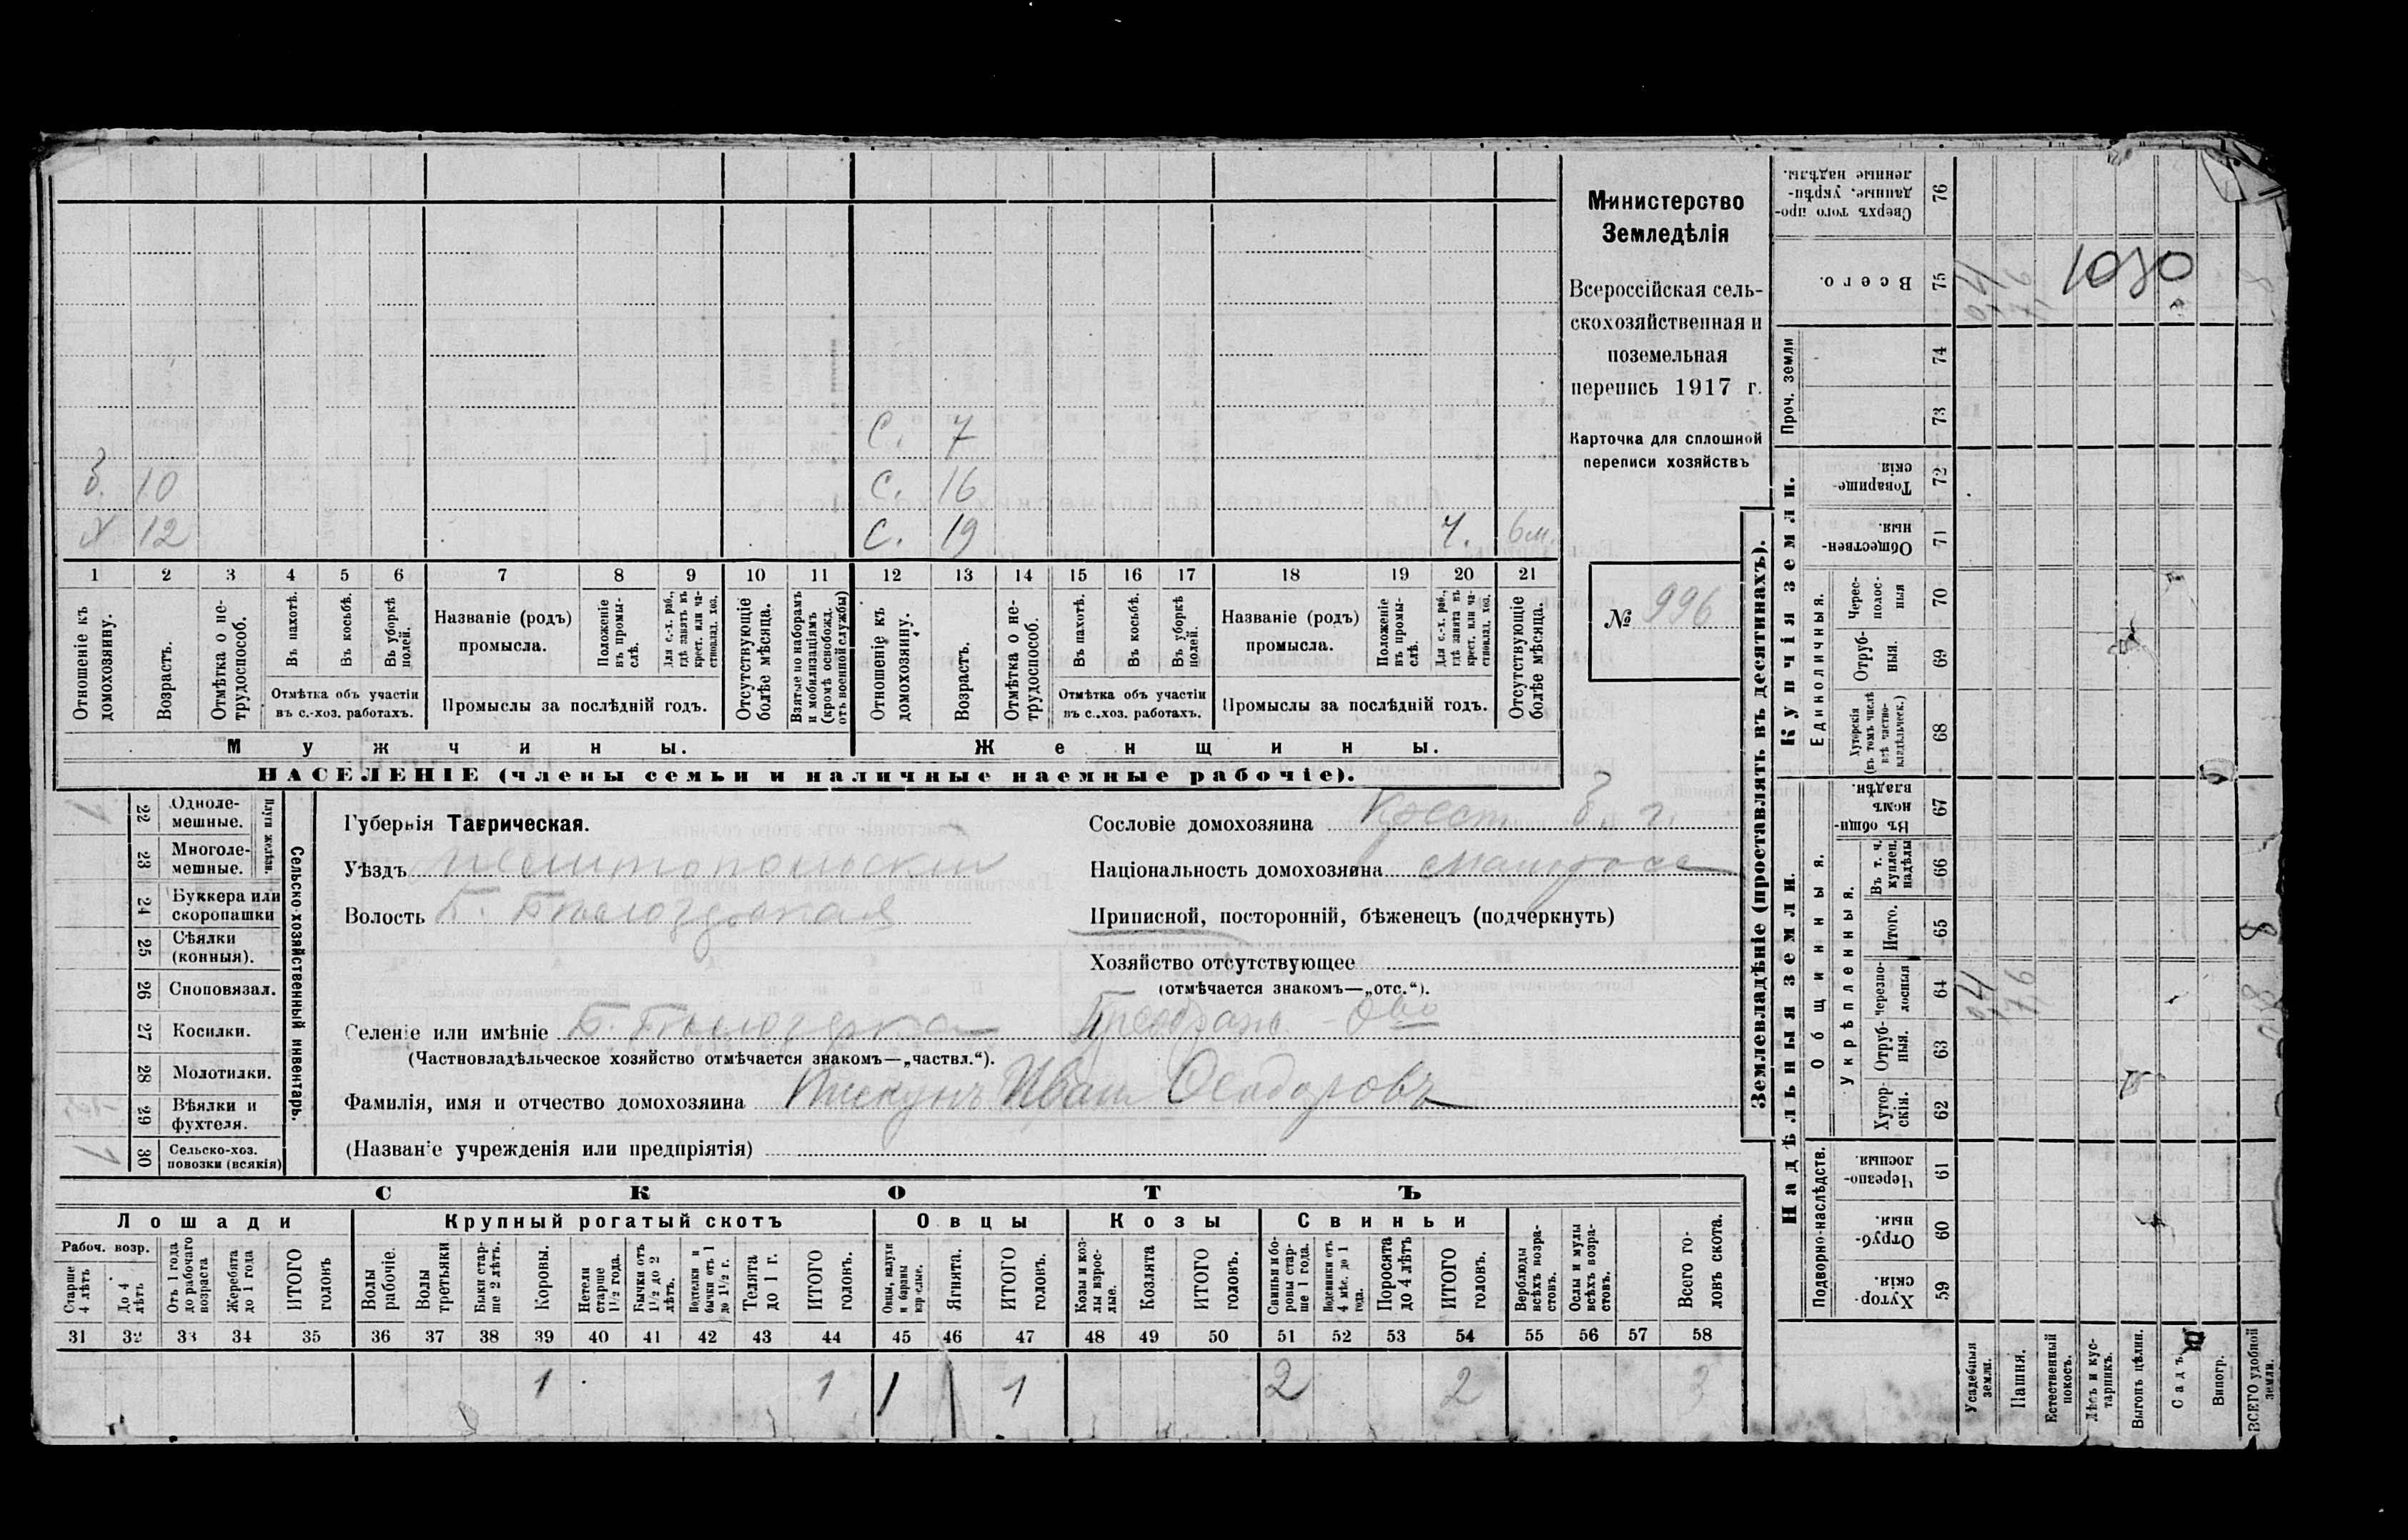 Министерство
Земледѣлія
Всероссійская сель-
скохозяйственная и
поземельная
перепись 1917 г.
Карточка для сплошной
переписи хозяйствъ
№ 996
1080
С. 7
10 С. 16
12 С. 19 6 м.
1 2 3 4 5 6 7 8 9 10 11 12 13 14 15 16 17 18 19 20 21
Отношеніе къ домохозяину.
Возрастъ.
Отмѣтка о не-трудоспособ.
Въ пахотѣ.
Въ косьбѣ.
Въ уборкѣ полей.
Отмѣтка объ участіи
въ с.-хоз. работахъ.
Названіе (родъ)
промысла.
Положеніе въ промы-слѣ.
Для с.-х. раб., гдѣ занятъ въ крест. или ча-стновлад. хоз.
Промыслы за послѣдній годъ.
Отсутствующіе болѣе мѣсяца.
Взятые по наборамъ и мобилизаціямъ (кромѣ освобожд. отъ военной службы)
Отношеніе къ домохозяину.
Возрастъ.
Отмѣтка о не-трудоспособ.
Въ пахотѣ.
Въ косьбѣ.
Въ уборкѣ полей.
Отмѣтка объ участіи
въ с.-хоз. работахъ.
Названіе (родъ)
промысла.
Положеніе въ промы-слѣ.
Для с.-х. раб., гдѣ занята въ крест. или ча-стновлад. хоз.
Промыслы за послѣдній годъ.
Отсутствующіе болѣе мѣсяца.
Мужчины. Женщины.
НАСЕЛЕНІЕ (члены семьи и наличные наемные рабочіе).
Сельско-хозяйственный инвентарь.
Плуги желѣзн.
22 Одноле-мешные. 1
23 Многоле-мешные.
24 Буккера или скоропашки
25 Сѣялки (конныя).
26 Сноповязал.
27 Косилки.
28 Молотилки.
29 Вѣялки и фухтеля.
30 Сельско-хоз. повозки (всякія) 1
Губернія Таврическая.
Уѣздъ Мелитопольскій
Волость Б. Бѣлозерская
Сословіе домохозяина Крест. б. г.
Національность домохозяина
Приписной, посторонній, бѣженецъ (подчеркнуть)
Хозяйство отсутствующее
(отмѣчается знакомъ—„отс.“).
Селеніе или имѣніе Б. Бѣлозерка Преображ. - Ово
(Частновладѣльческое хозяйство отмѣчается знакомъ—„частвл.“).
Фамилія, имя и отчество домохозяина Пискунъ Иванъ Ѳеодоровъ
(Названіе учрежденія или предпріятія)
СКОТЪ
Лошади Крупный рогатый скотъ Овцы Козы Свиньи
Рабоч. возр.
Старше 4 лѣтъ
До 4 лѣтъ
Отъ 1 года до рабочаго возраста
Жеребята до 1 года
ИТОГО головъ
Волы рабочіе.
Волы третьяки
Быки стар-ше 2 лѣтъ.
Коровы.
Нетели старше 1½ года.
Бычки отъ 1½ до 2 лѣтъ.
Подтелки и бычки отъ 1 до 1½ г.
Телята до 1 г.
ИТОГО головъ.
Овцы, валухи и бараны взрослые.
Ягнята.
ИТОГО головъ.
Козы и коз-лы взрос-лые.
Козлята
ИТОГО головъ.
Свиньи и бо-ровы стар-ше 1 года.
Подсвинки отъ 4 мѣс. до 1 года.
Поросята до 4 лѣтъ
ИТОГО головъ.
Верблюды всѣхъ возра-стовъ.
Ослы и мулы всѣхъ возра-стовъ.
Всего го-ловъ скота.
31 32 33 34 35 36 37 38 39 40 41 42 43 44 45 46 47 48 49 50 51 52 53 54 55 56 57 58
1 1 1 1 1 2 2 3
Землевладѣніе (проставлять въ десятинахъ).
Надѣльныя земли. Купчія земли.
Проч. земли
Сверхъ того про-данные, укрѣп-ленные надѣлы. 76
Всего. 75
74
73
Товарище-скія. 72
Обществен-ныя. 71
Единоличныя.
Черес-полос-ныя 70
Отруб-ныя. 69
Хуторскія (въ томъ числѣ всѣ частно-владѣльческ.) 68
Общинныя.
Въ общин-номъ владѣн. 67
Укрѣпленныя.
Въ т. ч. куплен. надѣлы 66
Итого. 65
Черезпо-лосныя 64
Отруб-ныя. 63
Хутор-скія. 62
Подворно-наслѣдств.
Черезпо-лосныя. 61
Отруб-ныя. 60
Хутор-скія. 59
Усадебныя земли.
Пашня.
Естественный покосъ.
Лѣсъ и кус-тарникъ.
Выгонъ цѣлин.
Садъ.
Виногр.
ВСЕГО удобной земли.